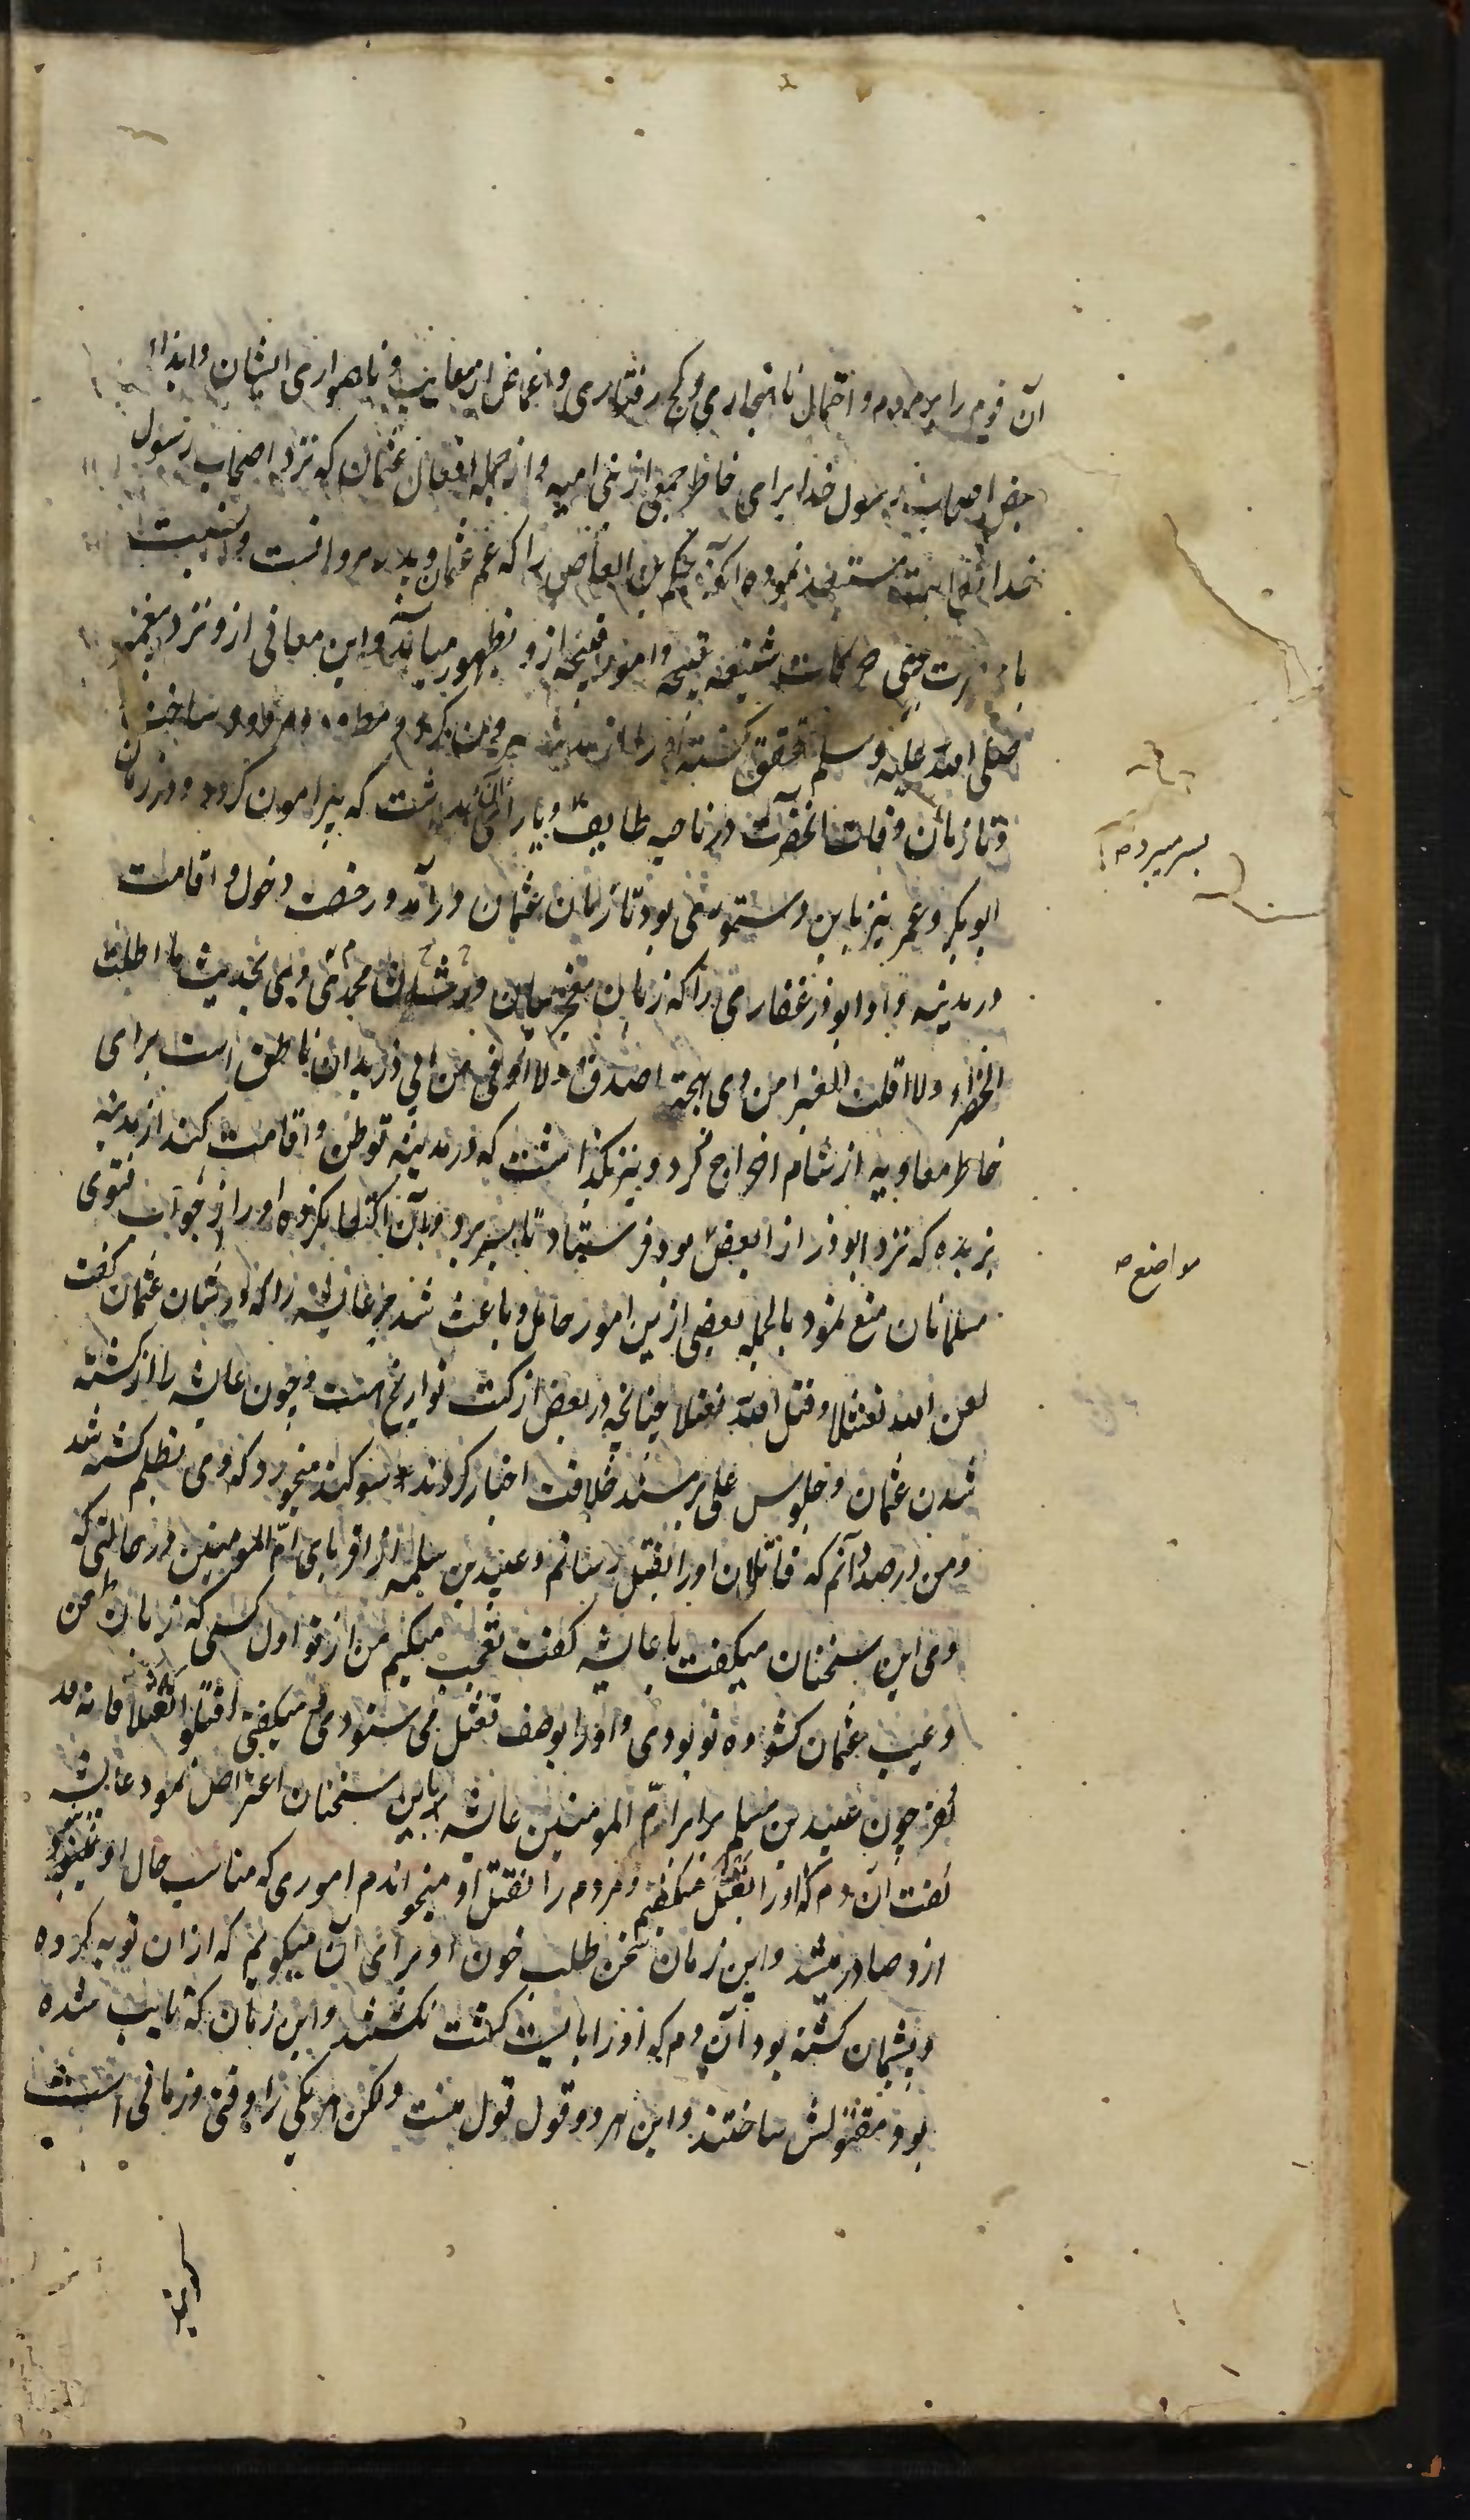 آن قوم را بر مردم و احتمال ناهنجاری و کج رفتاری و اغماض از معایب و ناهمواری ایشان و ایذاء
بعض اصحاب رسول خدا برای خاطر جمعی از بنی امیه و از جمله افعال عثمان که نزد اصحاب رسول
خدا مستبعد نموده آنکه حکم بن العاص را که عم عثمان و پدر مروانست و نسبت
با حرکات شنیعه قبیحه و امور قبیحه ازو بظهور میآمد و این معانی ازو نزد پیغمبر
صلی الله علیه و سلم تحقق گشته او را از مدینه بیرون کرد و مطرود و مردود ساخت
و تا زمان وفات آنحضرت در ناحیه طایف و یارای آن نداشت که پیرامون گردد و در زمان
ابوبکر و عمر نیز باین دستور منفی بود تا زمان عثمان درآمد و رخصت دخول و اقامت
در مدینه داد و ابوذر غفاری را که زبان معجز بیان در شان محمدی وی بحدیث ما اظلت
الخضراء و لا اقلت الغبرا من ذی لهجة اصدق و لا اوفی من ابی ذر بدان ناطق است برای
خاطر معاویه از شام اخراج کرد و نیز نگذاشت که در مدینه توطن و اقامت کند از مدینه
بربذه که نزد ابوذر از ابغض بود فرستاد تا بسر برد و بآن اکتفا نکرده او را از جواب فتوی
مسلمانان منع نمود بالجمله بعضی ازین امور حامل و باعث شد مر عایشه را که در شان عثمان گفت
لعن الله نعثلا و قتل الله نعثلا چنانچه در بعض از کتب تواریخ است و چون عایشه را از کشته
شدن عثمان و جلوس علی بر مسند خلافت اخبار کردند سوگند میخورد که وی بظلم کشته شد
و من در صدد آنم که قاتلان او را بقتل رسانم و عبید بن سلمه از اقربای ام المومنین در حالتی که
وی این سخنان میگفت با عایشه گفت تعجب میکنم من از تو اول کسی که زبان طعن
و عیب عثمان گشوده تو بودی و او را بوصف نعثل می ستودی و میگفتی اقتلوا نعثلا فانه قد
کفر چون عبید بن سلمه برام المومنین عایشه باین سخنان اعتراض نمود عایشه
گفت آن دم که او را نعثل میگفتم و مردم را بقتل او میخواندم اموری که مناسب حال او نبود
ازو صادر میشد و این زمان سخن طلب خون او برای آن میگویم که ازان توبه کرده
و پشیمان گشته بود آن دم که او را بایست کشت نکشتند و این زمان که تایب شده
بود مقتولش ساختند و این هر دو قول قول منست ولکن هر یکی را وقتی و زمانی است
بسر میبرد
مواضع